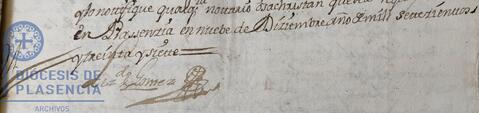 glo notifique qualqr notario osachristan
en Plasenzia en nuebe de Diziembre año de mill setezientos
y treinta y siete
Gomez
DIÓCESIS DE
PLASENCIA
ARCHIVOS